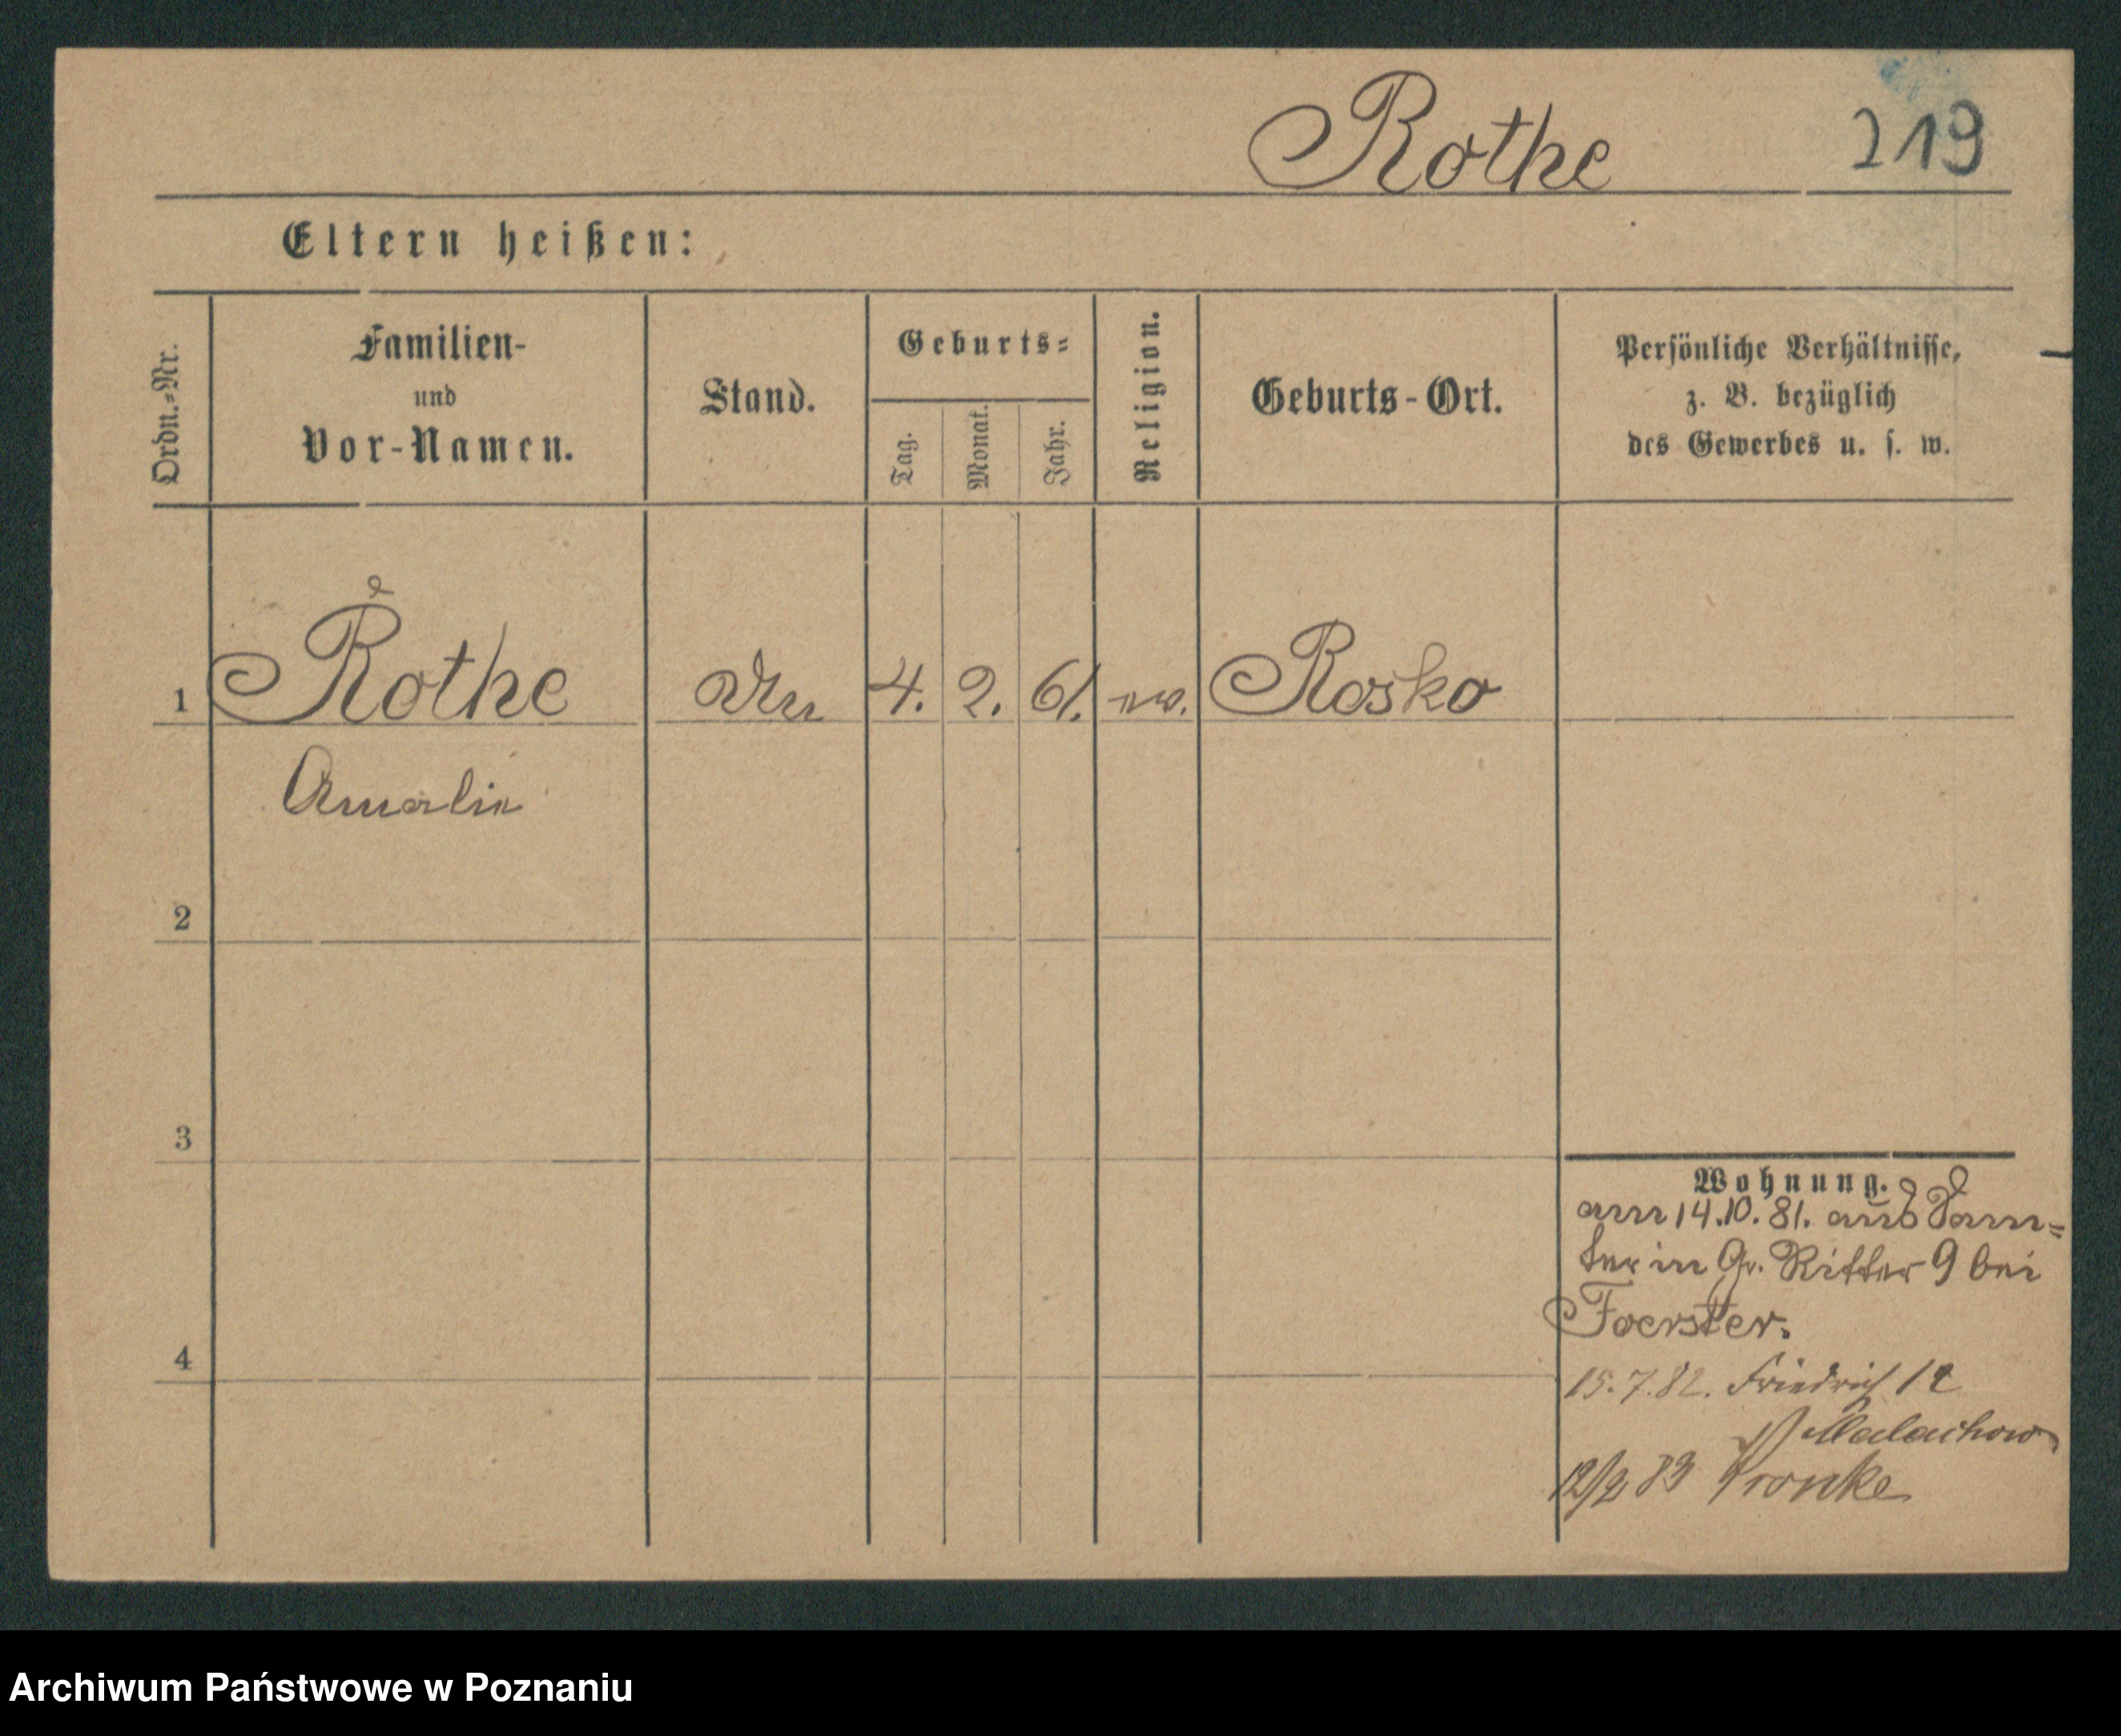 Rothe 219
Eltern heißen:
Ordn.-Nr.
Familien-
und
Vor-Namen.
Stand.
Geburts-
Tag.
Monat.
Jahr.
Religion.
Geburts-Ort.
Persönliche Verhältnisse,
z. B. bezüglich
des Gewerbes u. s. w.
1 Rothe 4. 2. 61. ev. Rosko
Amalie
2
3
4
Wohnung.
am 14.10.81. aus Sam=
ter in Gr. Ritter 9 bei
Foerster.
15.7.82. Friedrich
Malachow
12/2 83 Wronke
Archiwum Państwowe w Poznaniu